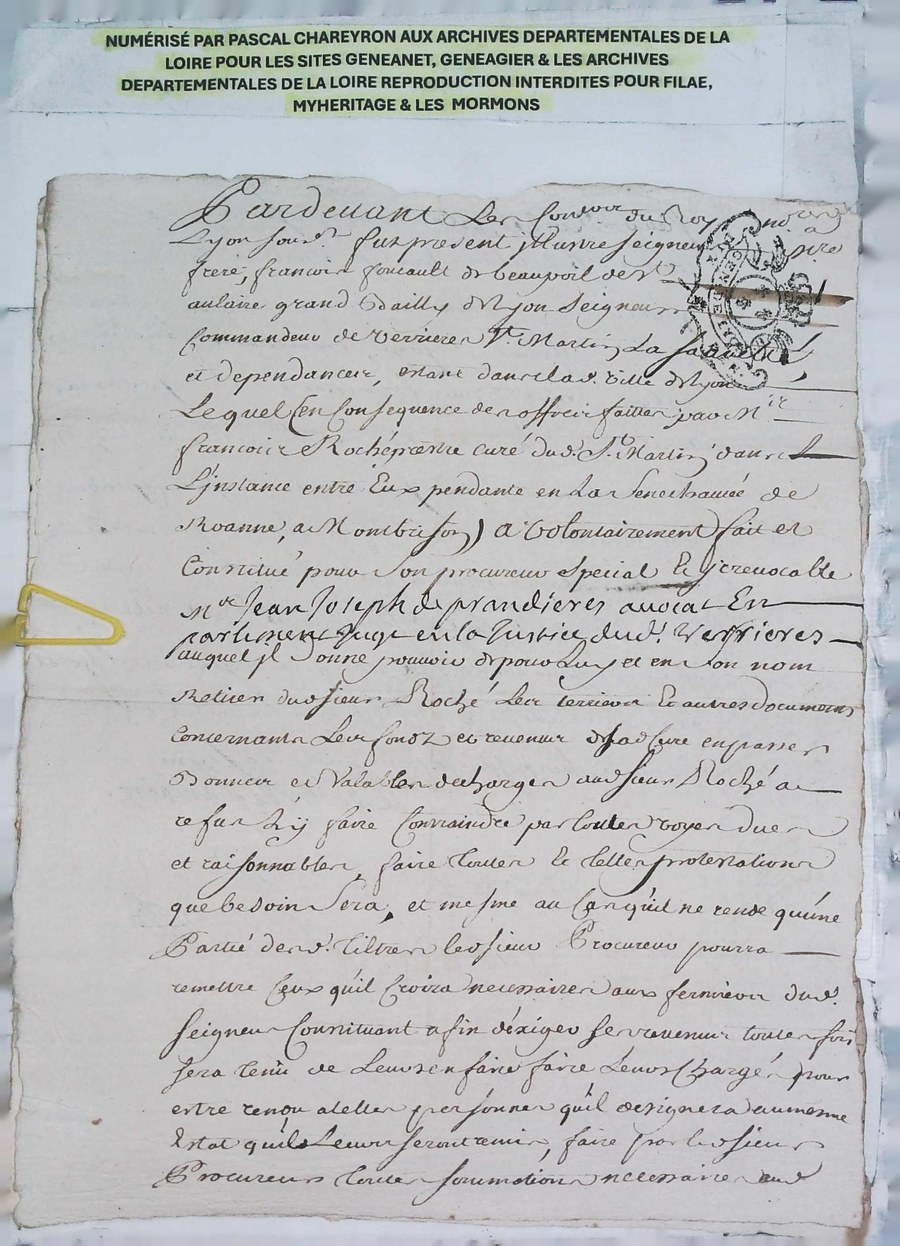 NUMÉRISÉ PAR PASCAL CHAREYRON AUX ARCHIVES DEPARTEMENTALES DE LA
LOIRE POUR LES SITES GENEANET, GENEAGIER & LES ARCHIVES
DEPARTEMENTALES DE LA LOIRE REPRODUCTION INTERDITES POUR FILAE,
MYHERITAGE & LES MORMONS
Pardevant Les Con du Roy no a
Lyon sous.é fut present jllustre seigneur
frere, francois foucault de beauvoil de St
aulaire grand Bailly de Lyon Seigneur
Commandeur de Verrieres St. Martin La
et dependances, estant dans lad. ville de Lyon
Lequel en Consequence des offres faittes par Mre
francois Roché prestre curé dud. St. Martin dans
L'jnstance entre Eux pendante en La Senechaucée de
Roanne, a Montbrison) a volontairement fait et
Constitué pour son procureur special Et jrrevocable
Mre Jean Joseph de prandieres avocat En
parlement Juge en la Justice dud. Verrieres
auquel jl donne pouvoir de pour Luy et en son nom
Retirer dud sieur Roché Les terriers Et autres documens
Concernants Les fondz et revenus de sad Cure en passer
Bonnes et Valables decharges aud sieur Roché au
refus L'y faire Contraindre par toutes voyes dues
et raisonnables, faire toutes Et telles protestations
que besoin sera, et mesme au Cas qu'il ne rende qu'une
Partie desd. tiltres led sieur Procureur pourra
remettre Ceux qu'il Croira necessaires aux fermiers dud.
Seigneur Constituant afin d'exiger ses revenus toutes fois
sera tenu de Leurs en faire faire Leurs Charges pour
estre rendu a telles personnes qu'il designera au mesme
Estat qu'ils Leurs seront remis, faire par led sieur
Procureur toutes sommations necessaires aud